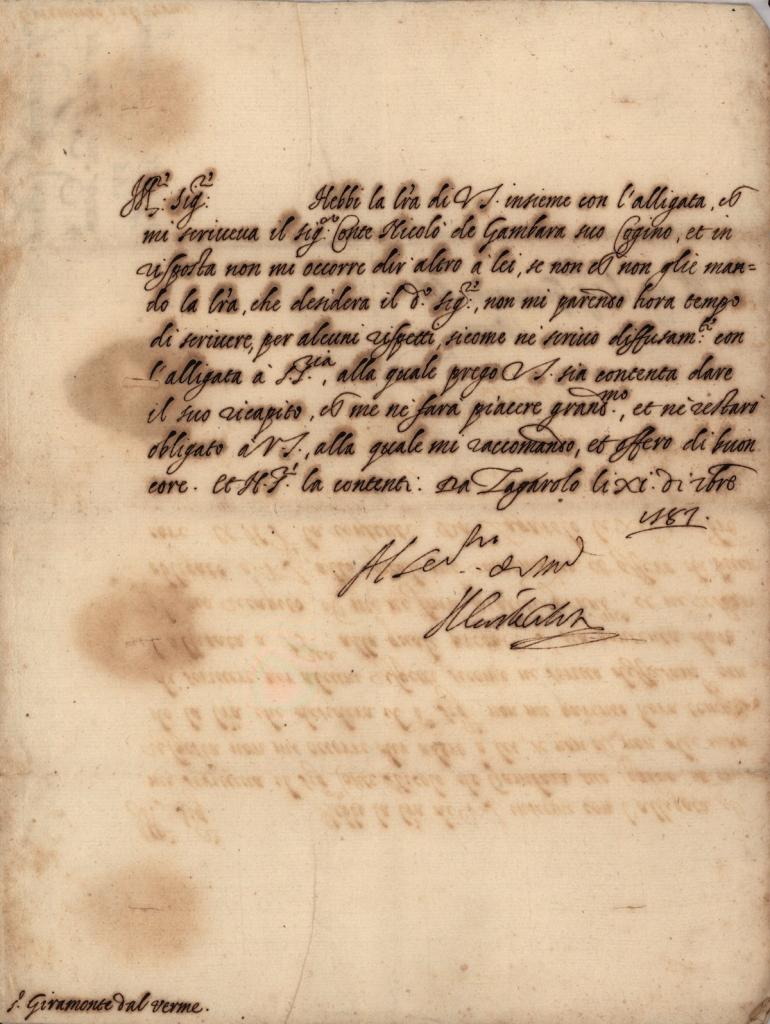 Sig.re Hebbi la lr̃a di V.S. insieme con l'alligata, ch̃
mi scriveva il sig.re Conte Nicolò de Gambara suo Cogino, et in
risposta non mi occorre dir altro à lei, se non ch̃ non glie man=
do la lr̃a, che desidera il d.o sig.re, non mi parendo hora tempo
di scrivere, per alcuni rispetti, sicome ne scrivo diffusam.te con
l'alligata à S.S.ria, alla quale prego V.S. sia contenta dare
il suo ricapito, ch̃ me ne farà piacere grand.mo, et ne restarò
obligato a V.S., alla quale mi raccomando, et offero di buon
core. Et N.S. la contenti. Da Zagarolo li xi. di
Giramonte dal verme.